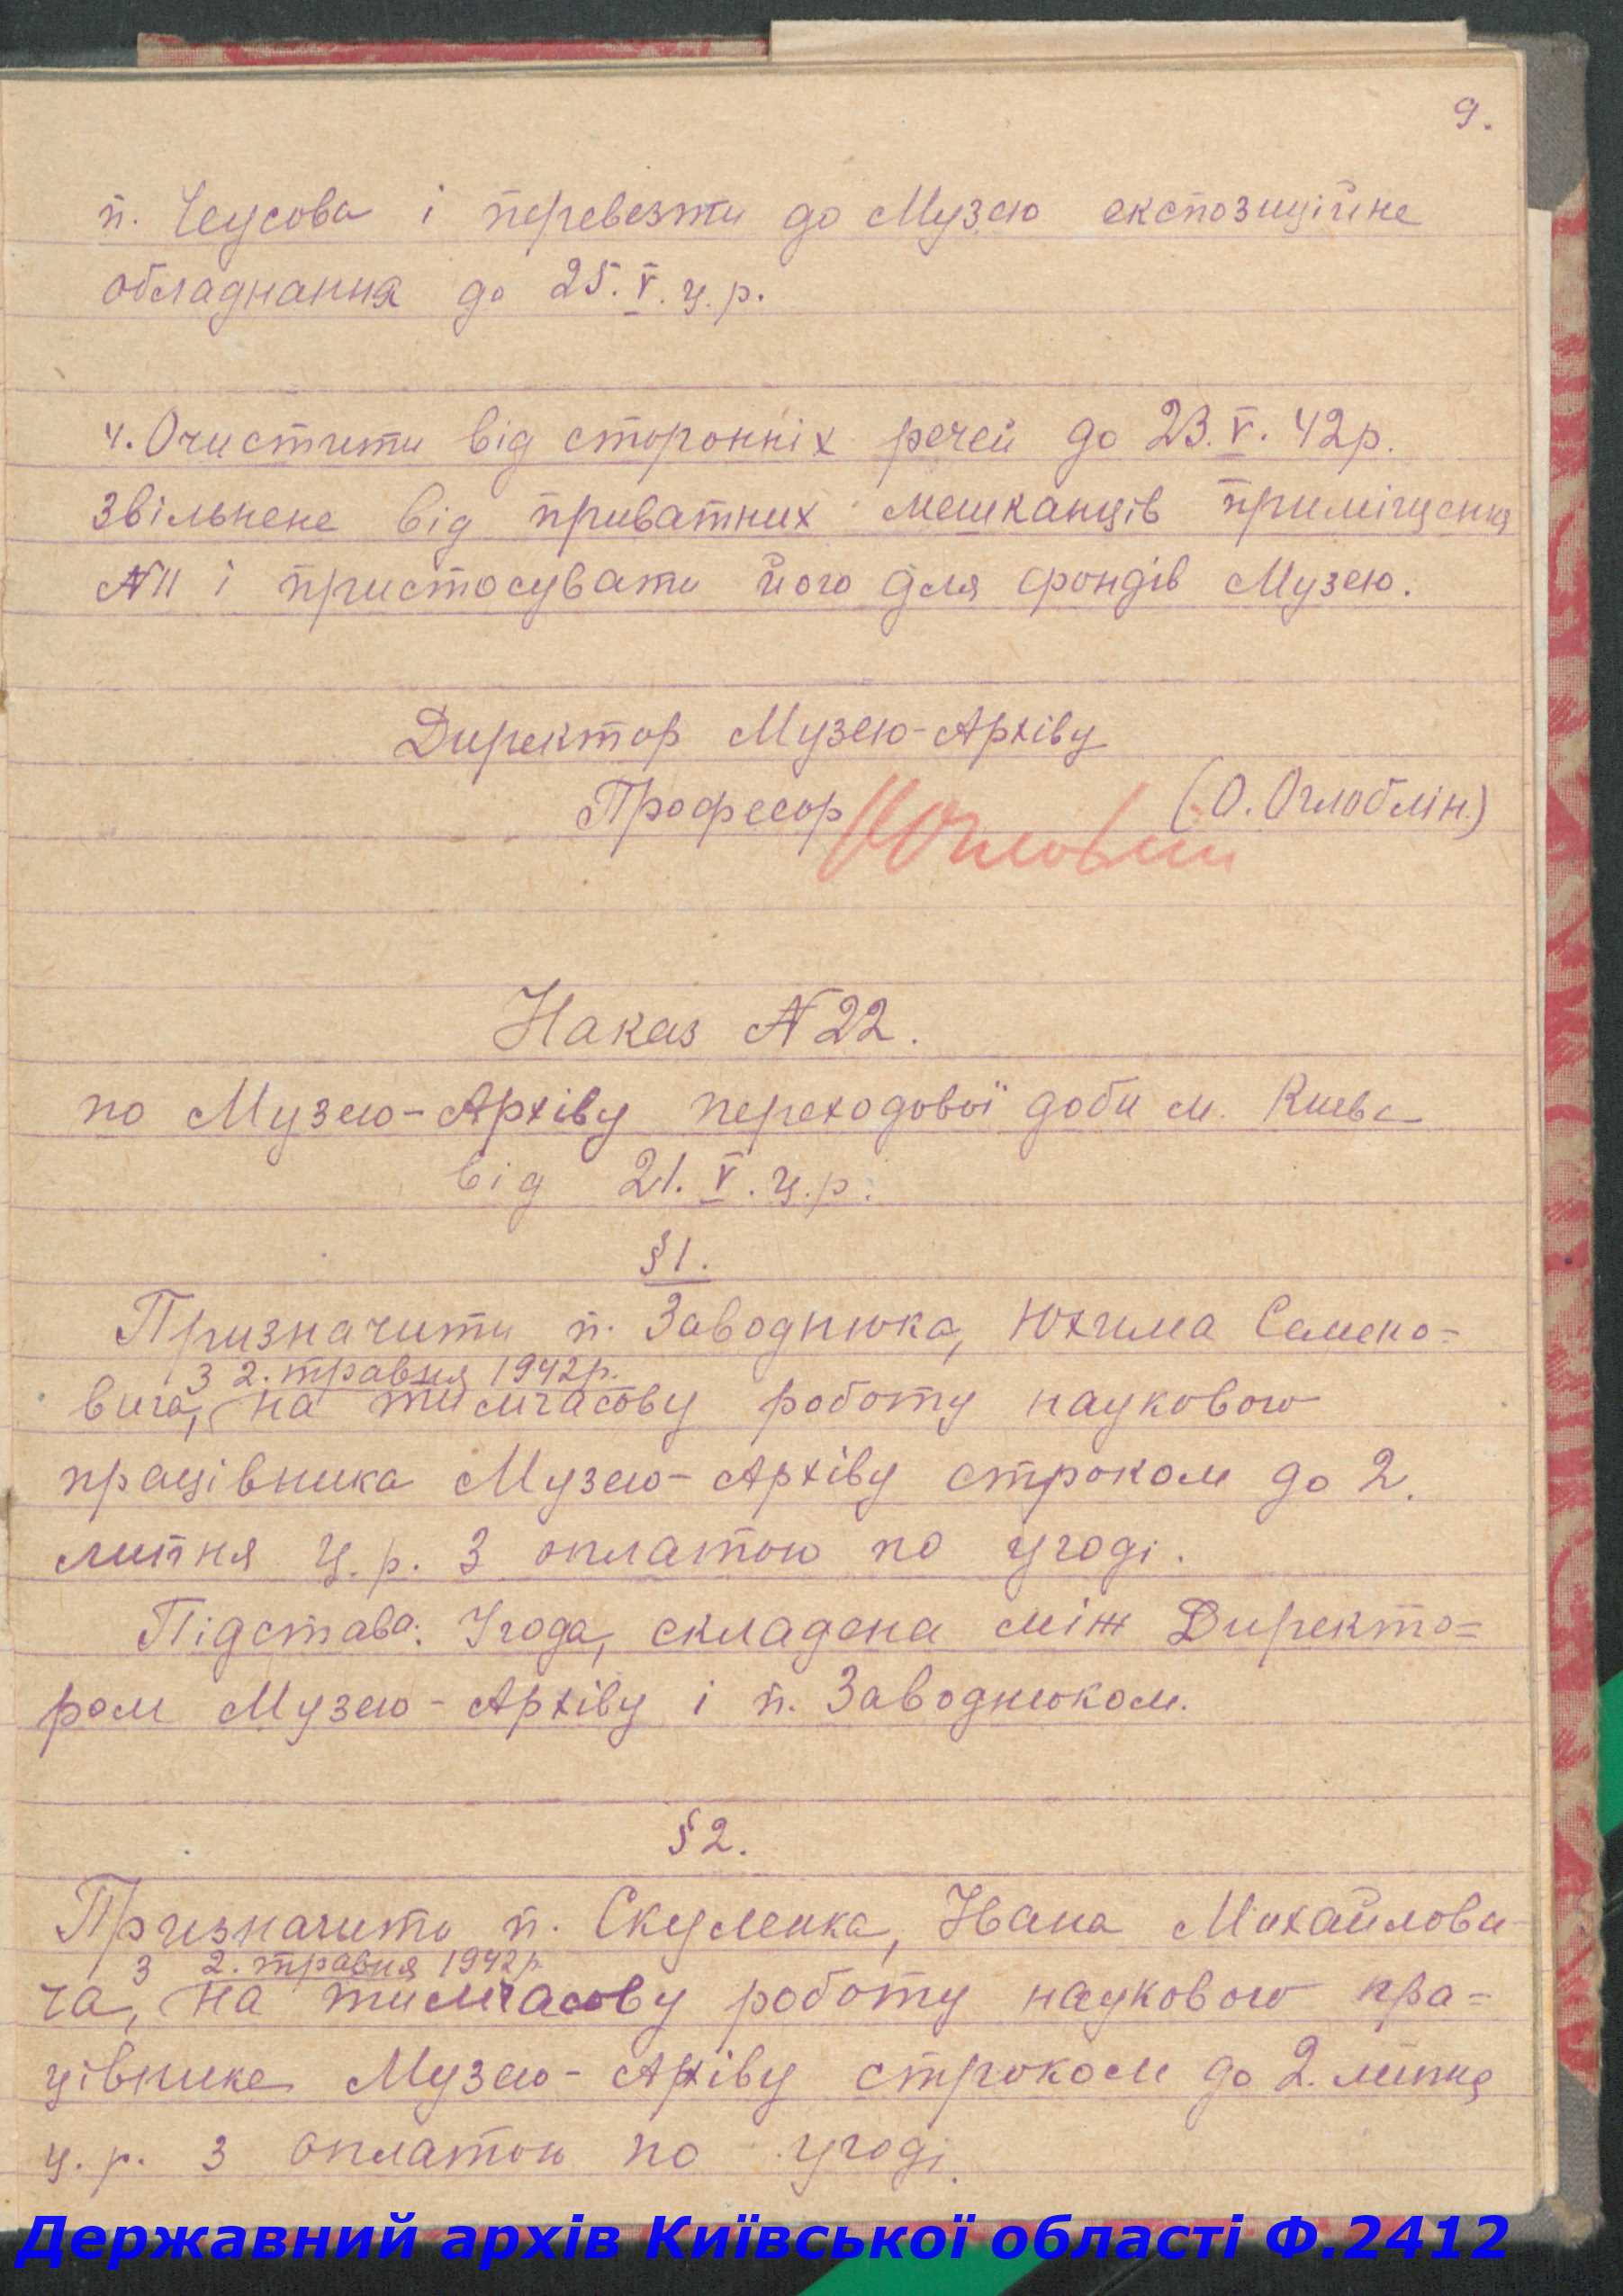 9.
п. Чеусова і перевезти до Музею експозиційне
обладнання до 25. V. ц. р.
4. Очистити від сторонніх речей до 23. V. 42 р.
звільнене від приватних мешканців приміщення
№ 11 і пристосувати його для фондів Музею.
Директор Музею-Архіву
Професор (О. Оглоблін)
Наказ № 22.
по Музею-Архіву переходової доби м. Києва
від 21. V. ц. р.
§ 1.
Призначити п. Заводнюка, Юхима Семено=
з 2. травня 1942 р.
вича, на тимчасову роботу наукового
працівника Музею-Архіву строком до 2.
липня ц. р. з оплатою по угоді.
Підстава: Угода, складена між Директо=
ром Музею-Архіву і п. Заводнюком.
§ 2.
Призначити п. Скуленка, Івана Михайлови-
з 2. травня 1942 р.
ча, на тимчасову роботу наукового пра=
цівника Музею-Архіву строком до 2. липня
ц. р. з оплатою по угоді.
Державний архів Київської області Ф.2412